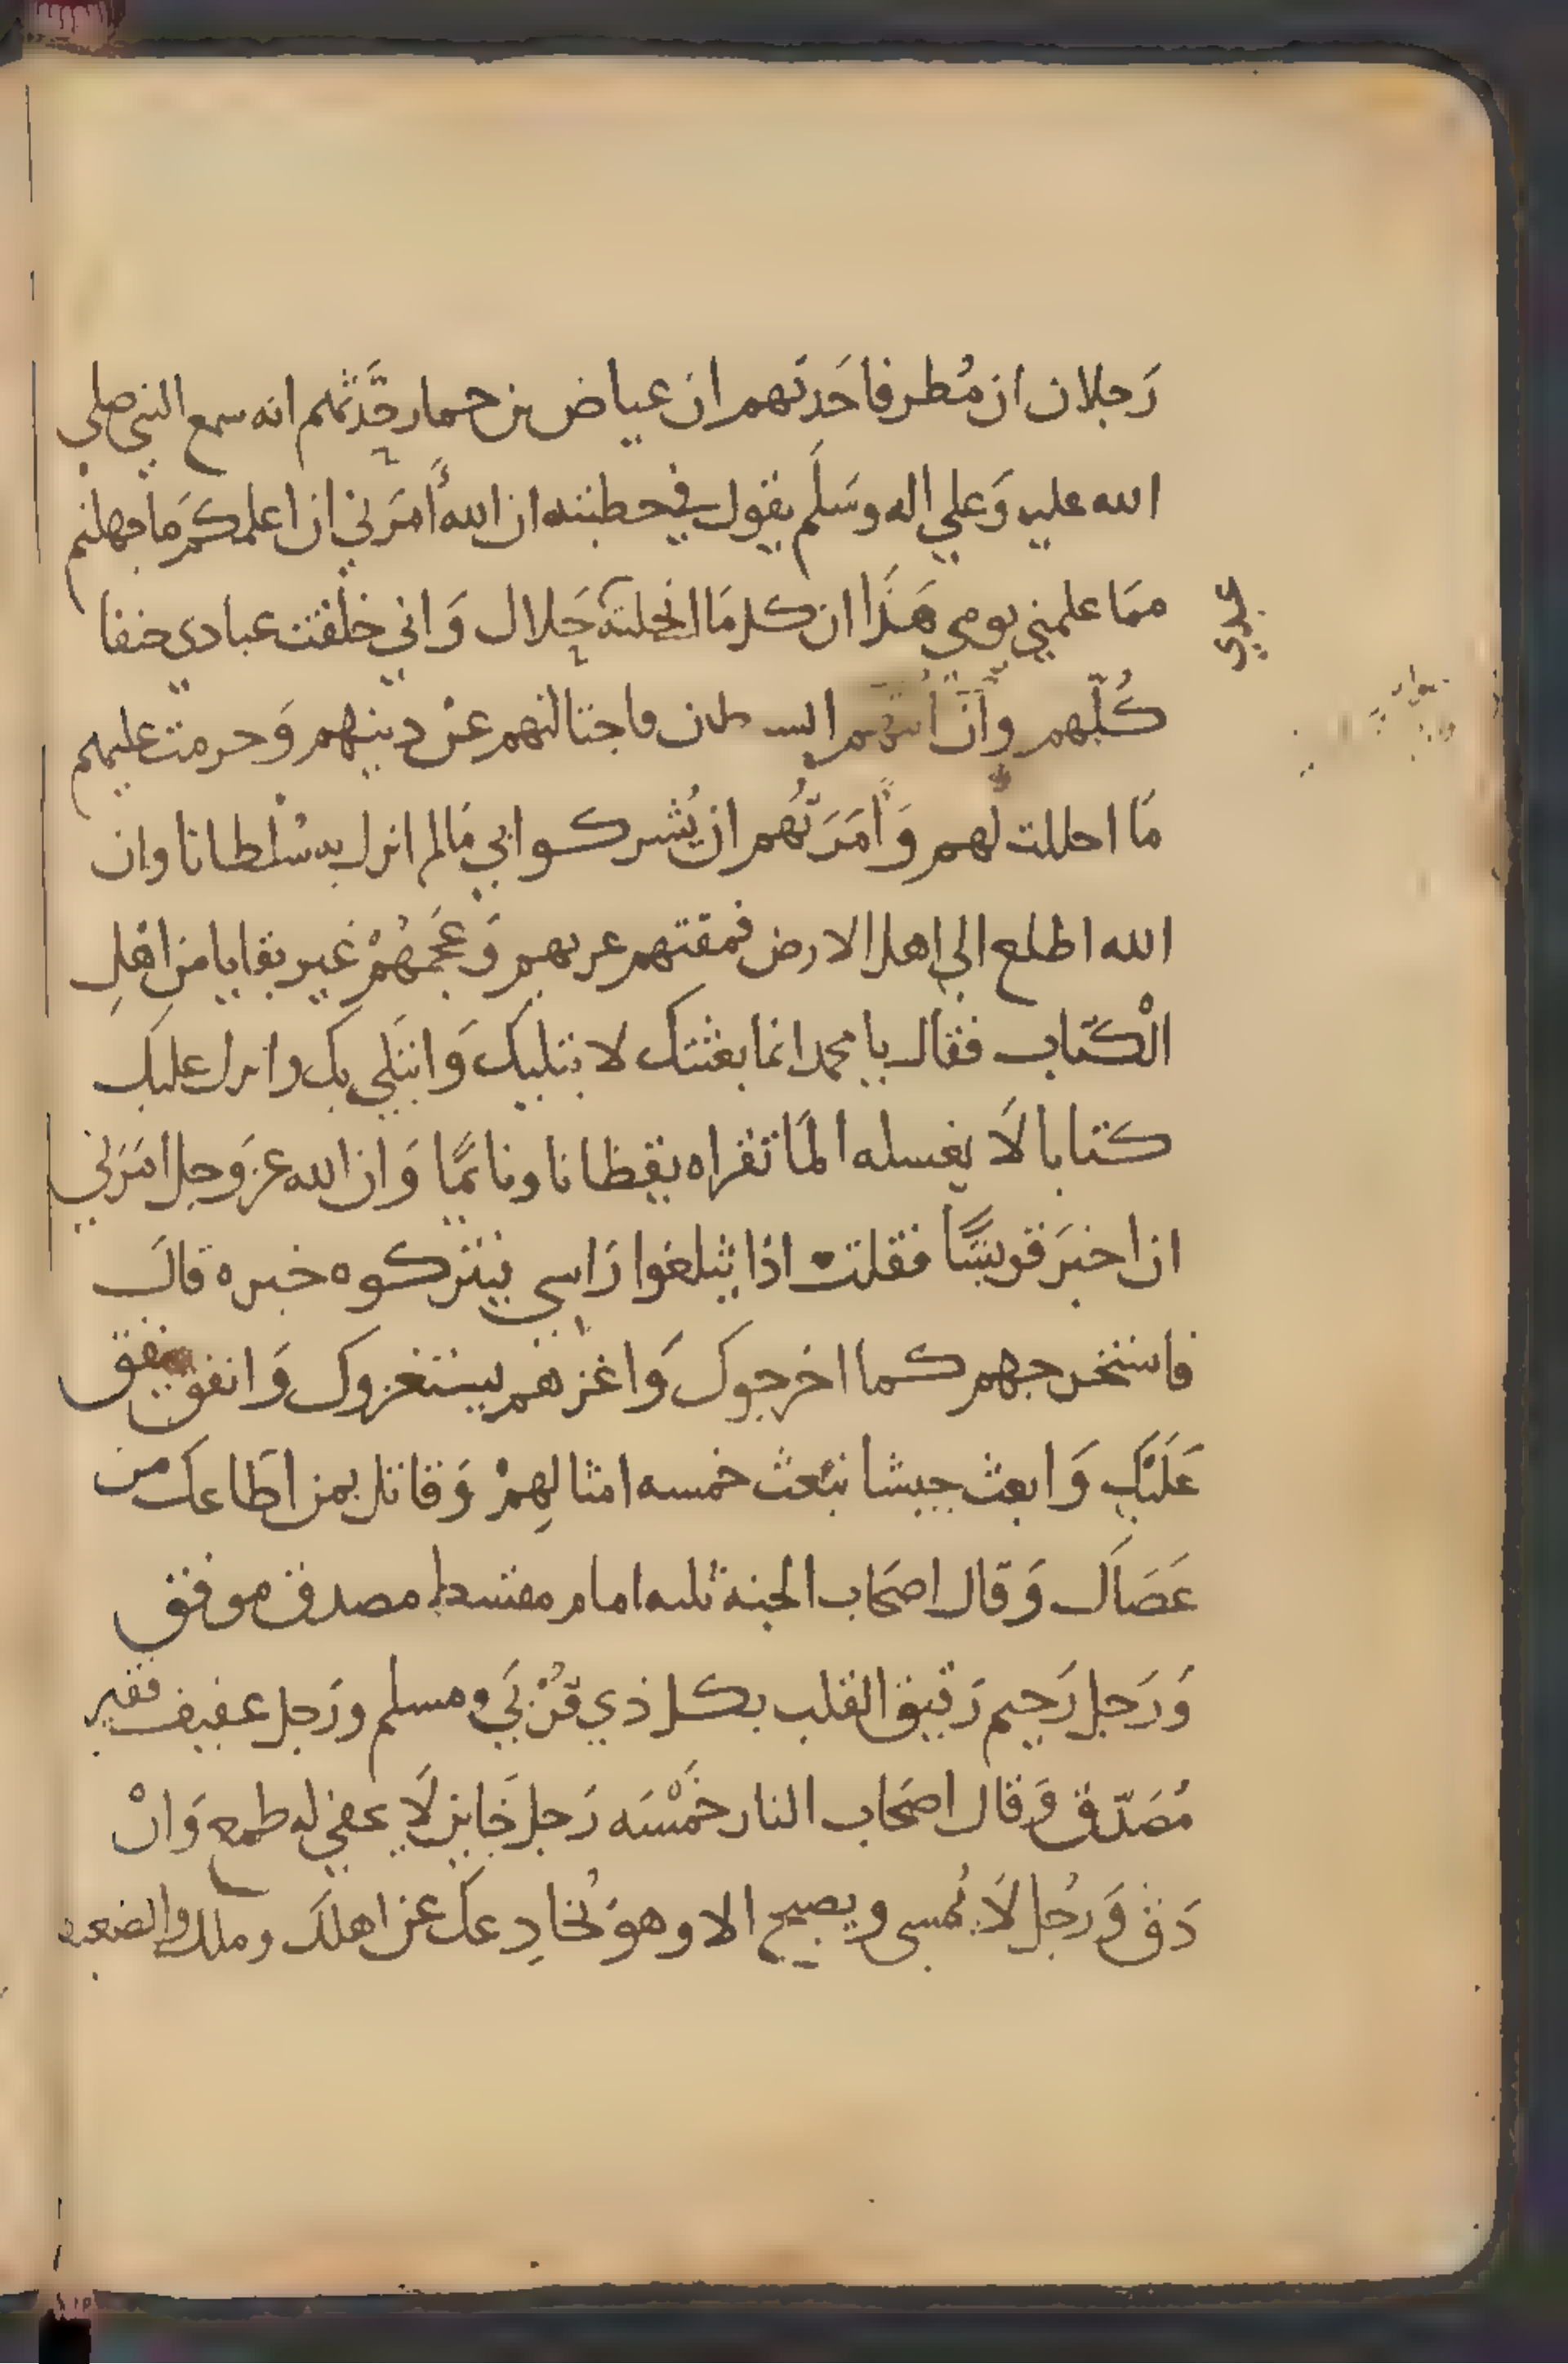 رَجلان ان مُطرفا حَدثهم ان عياض بن حمار حَدَّثهم انه سمع النبي صلى
الله عليه وَعلي اله وسَلَم يقول في خطبته ان اللهَ أمَرَني ان اعلمكم مَا جهلتم
ممَا علمني يومي هَذا ان كل مَا انحلته حَلال وَاني خلقت عبادي حنفا
عبدي
كُلّهم وأنَّ أتتهم الشيطان فاجتالتهم عنْ دينهم وَحرمت عليهم
مَا احللت لهم وَأمَرَتهُم ان يُشركوا بي مَالم انزل به سْلطانا وان
الله اطلع الي اهل الارض فمقتهم عربهم وَعَجَمهُمْ غَير بقايا مِن اهْلِ
الْكتاب فقال يا محمد انما بعثتك لابتليك وَابتَلي بك وانزل عليك
كتابا لَا يغسله المَا تقراه يقظانا ونايمًا وَان الله عز وَجل امَرَني
ان اخبرَ قريشًا فقلت اذا يثلغوا رَاسي فيتركوه خبره قالَ
فاستخرجهم كما اخرجوكَ وَاغزهم يستغزوك وَانفق ينفق
عَلَيْكِ وَابعث جيشا نبْعث خمسه امثالهِمْ وَقاتل بمن اطَاعكَ من
عَصَاكَ وَقال اصحَاب الجنة ثلثه امام مقسط مصدق موفق
وَرَجل رَحيم رَقيق القلب بكل ذي قُرْبَي ومسلم ورَجل عفيف فقير
مُصَدّق وَقال اصحَاب النار خَمْسَه رَجل خَاين لَا يخفي له طمع وَانْ
دَق وَرجُل لَا يُمسي ويصبح الا وهوَ يُخادِعكَ عن اهلكَ وملك والضعيف